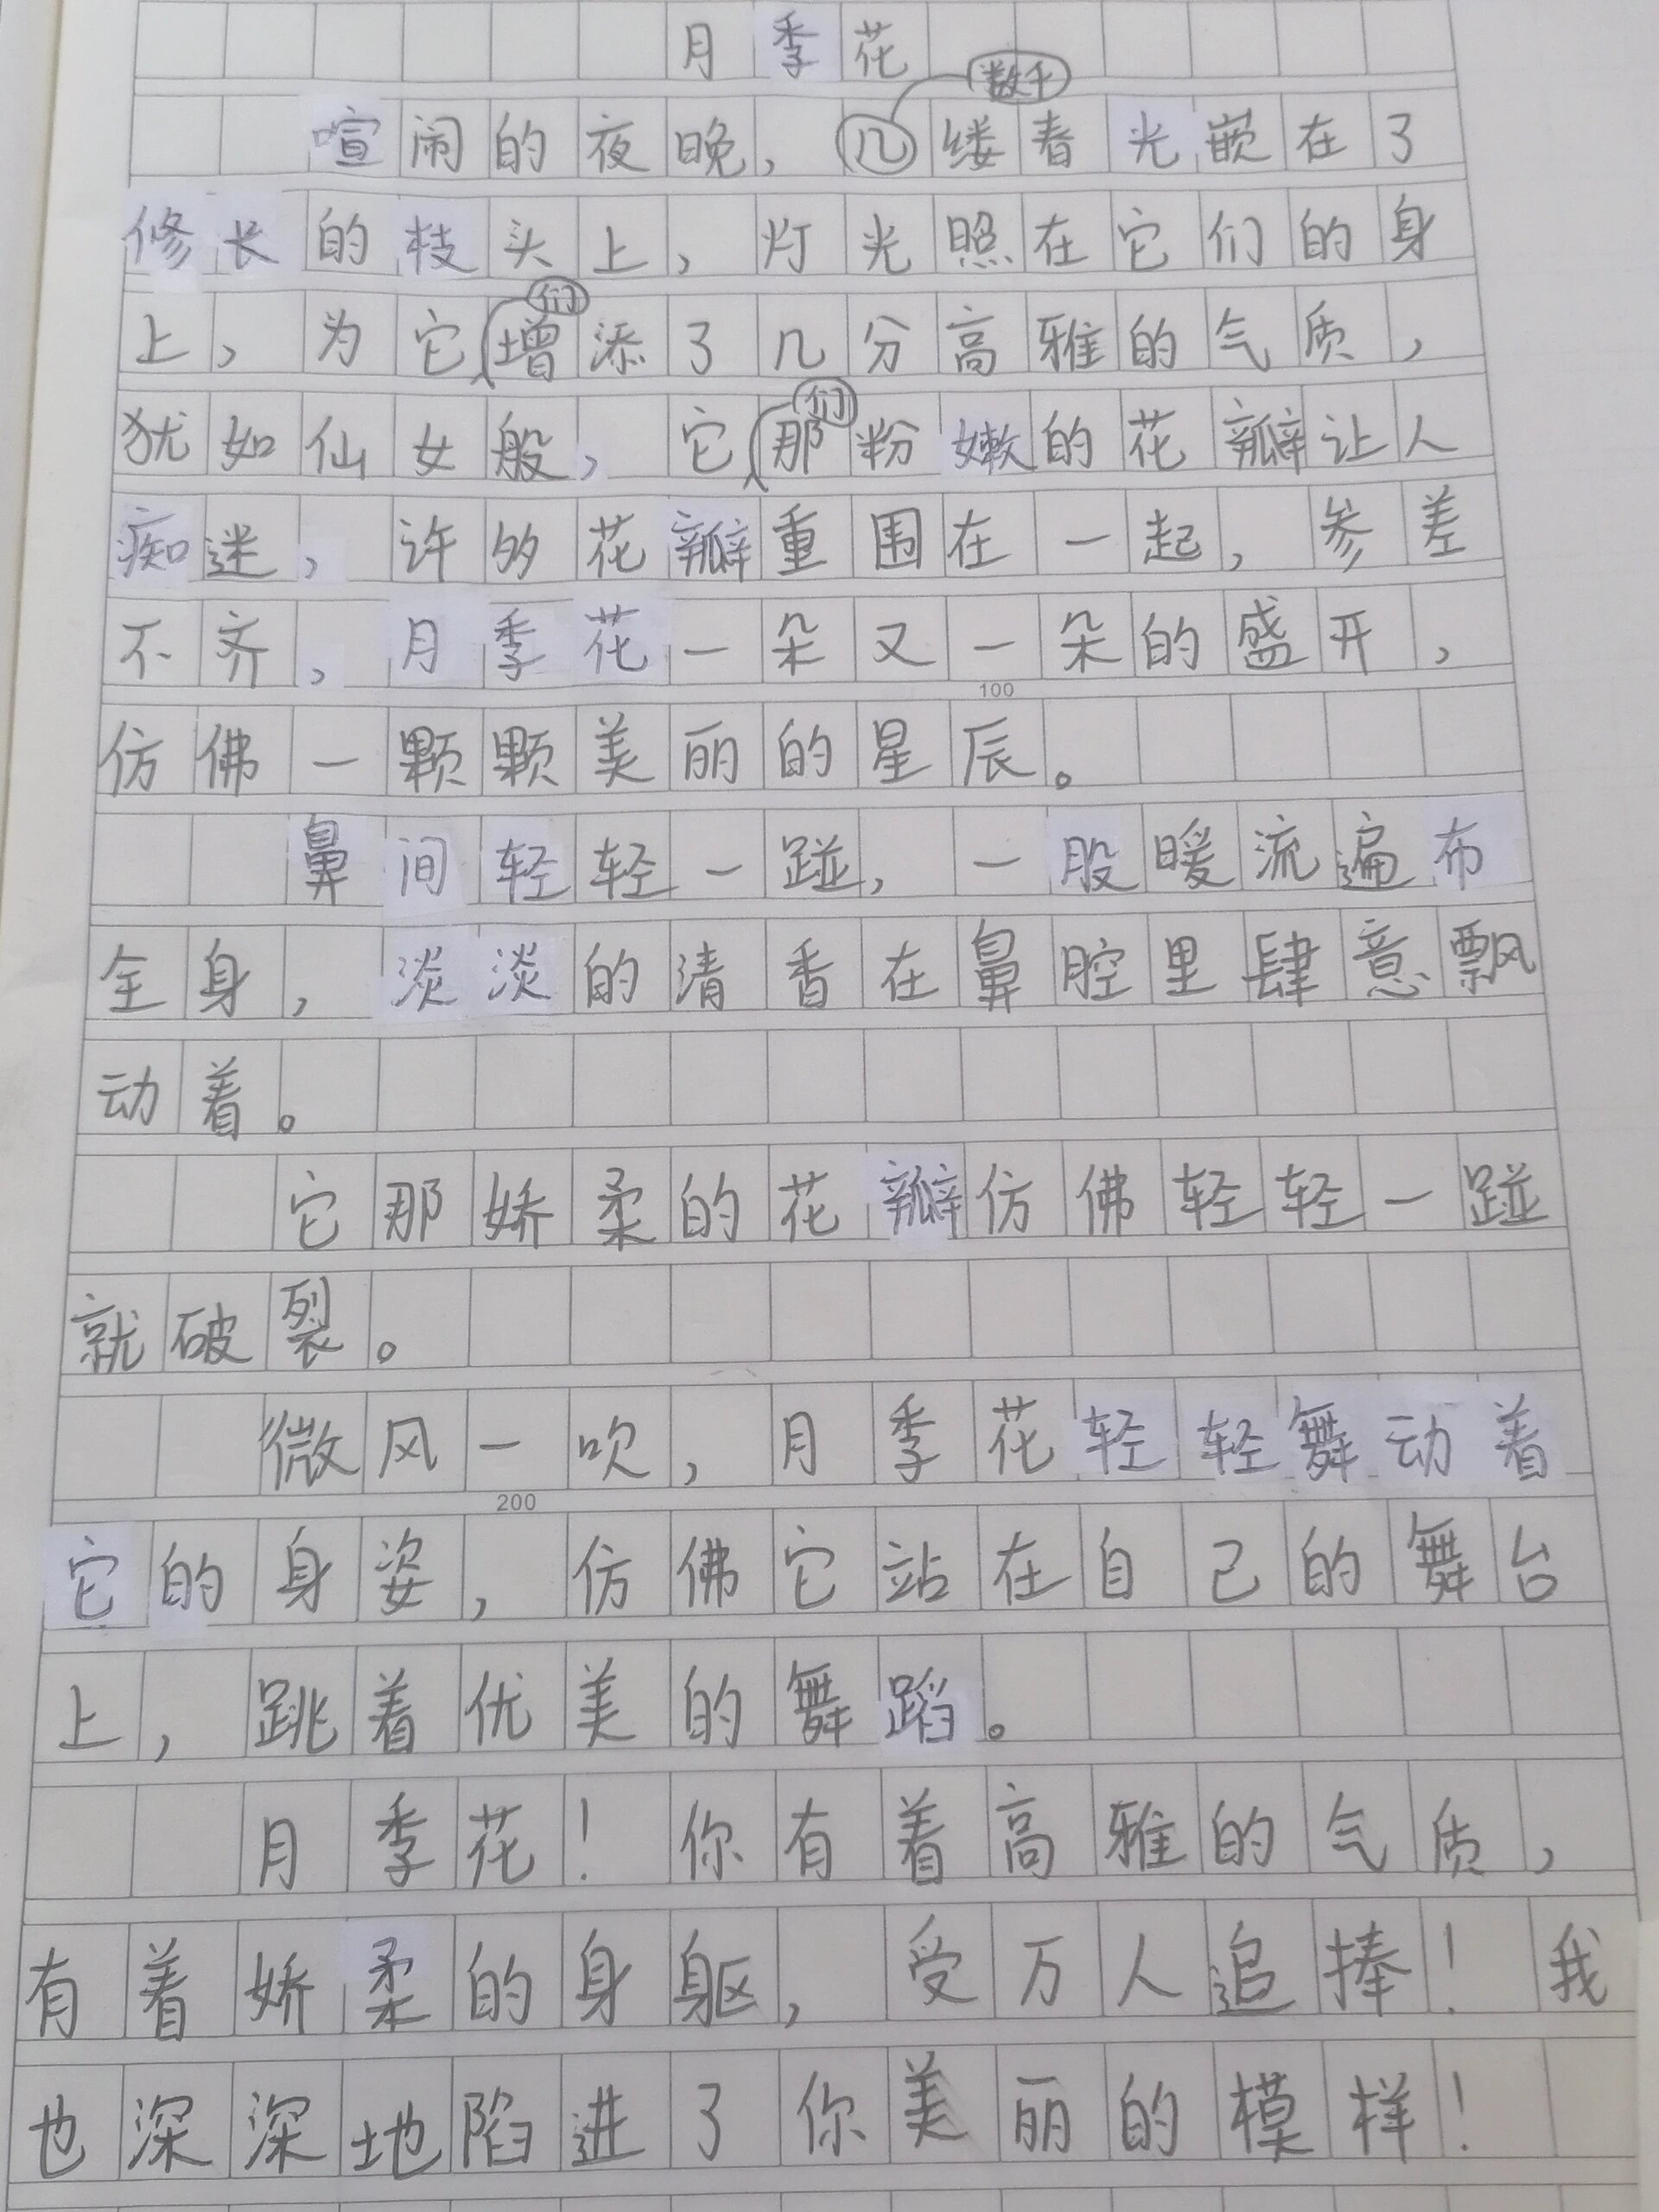 月季花
数千
喧闹的夜晚，几缕春光嵌在了
修长的枝头上，灯光照在它们的身
们
上，为它增添了几分高雅的气质，
们
犹如仙女般，它那粉嫩的花瓣让人
痴迷，许多花瓣重围在一起，参差
不齐，月季花一朵又一朵的盛开，
100
仿佛一颗颗美丽的星辰。
鼻间轻轻一碰，一股暖流遍布
全身，淡淡的清香在鼻腔里肆意飘
动着。
它那娇柔的花瓣仿佛轻轻一碰
就破裂。
微风一吹，月季花轻轻舞动着
200
它的身姿，仿佛它站在自己的舞台
上，跳着优美的舞蹈。
月季花！你有着高雅的气质，
有着娇柔的身躯，受万人追捧！我
也深深地陷进了你美丽的模样！